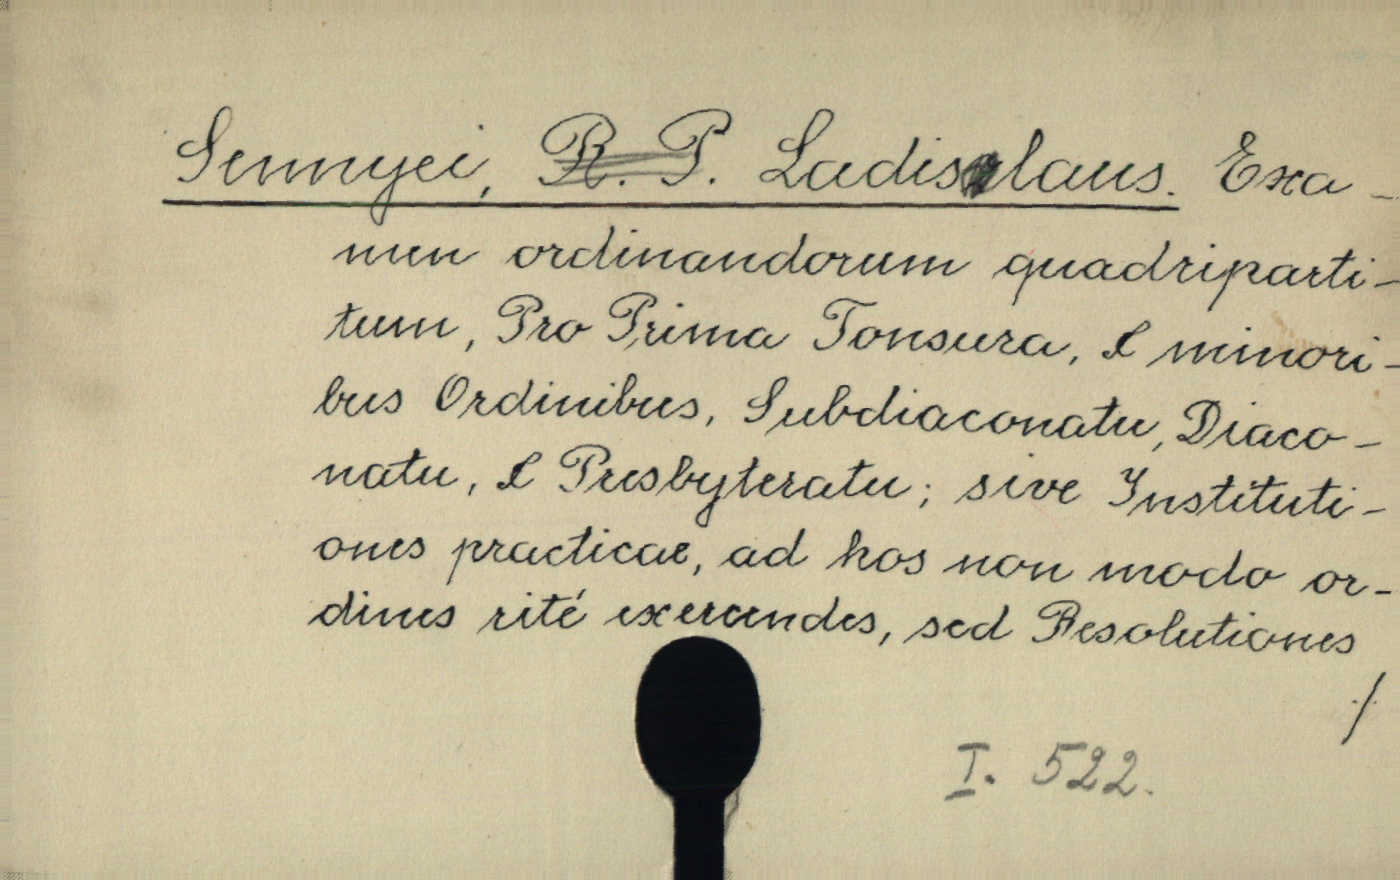 Sennyei, R. P. Ladislaus. Exa-
men ordinandorum quadriparti-
tum, Pro Prima Tonsura, & minori-
bus Ordinibus, Subdiaconatu, Diaco-
natu, & Presbyteratu; sive Instituti-
ones practicae, ad hos non modo or-
dines rité exercendes, sed Resolutiones
./.
I. 522.